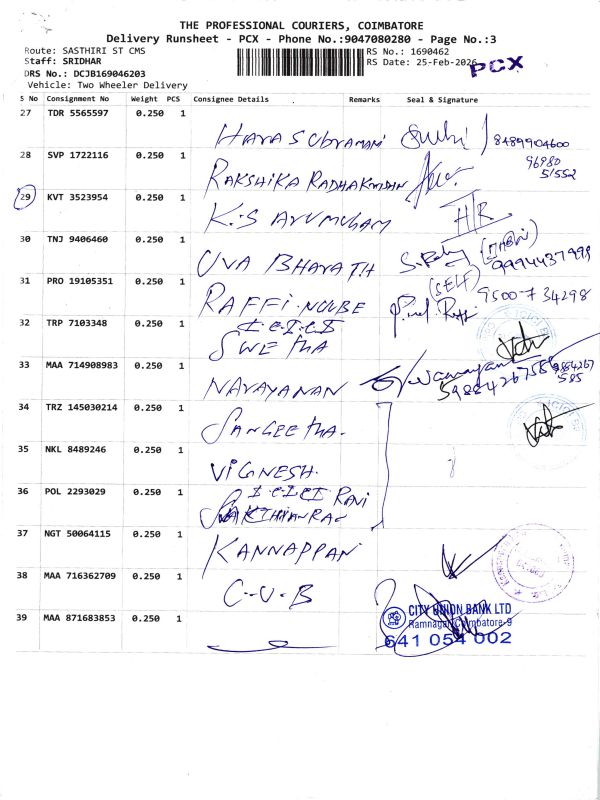 THE PROFESSIONAL COURIERS, COIMBATORE
Delivery Runsheet - PCX - Phone No.:9047080280 - Page No.:3
Route: SASTHIRI ST CMS
RS No.: 1690462
Staff: SRIDHAR
RS Date: 25-Feb-2026
PCX
DRS No.: DCJB169046203
Vehicle: Two Wheeler Delivery
S No Consignment No Weight PCS Consignee Details Remarks Seal & Signature
27 TDR 5565597 0.250 1 HARA SUBRAMANI 8489904600
28 SVP 1722116 0.250 1 RAKSHIKA RADHAKRISHNAN 96980
51552
29 KVT 3523954 0.250 1 K.S ARUMUGAM H/R
30 TNJ 9406460 0.250 1 UVA BHARATH 9994437999
31 PRO 19105351 0.250 1 RAFFI (SELF) 9500734298
32 TRP 7103348 0.250 1 I.C.I.C.I
SWETHA
33 MAA 714908983 0.250 1 NARAYANAN
34 TRZ 145030214 0.250 1 SANGEETHA.
35 NKL 8489246 0.250 1 VIGNESH.
36 POL 2293029 0.250 1 I.C.I.C.I
37 NGT 50064115 0.250 1 KANNAPPAN
38 MAA 716362709 0.250 1 C-U-B
39 MAA 871683853 0.250 1
CITY UNION BANK LTD
Ramnagar, Coimbatore-9
641 054 002